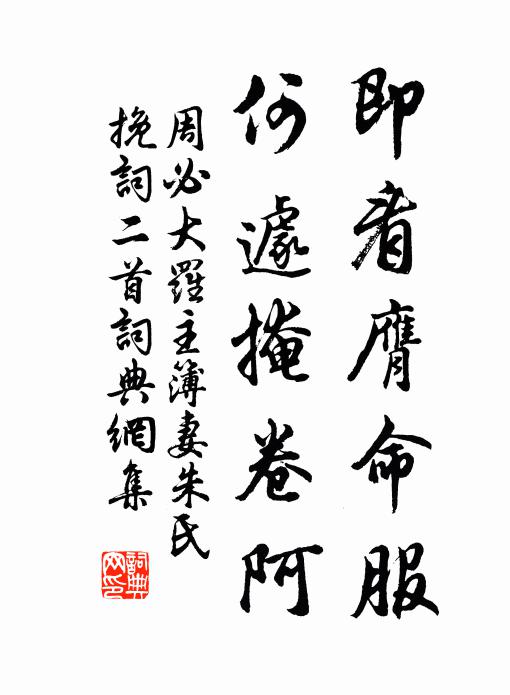 即看膺命服
何遽掩卷阿
周必大羅主簿妻朱氏
挽詞二首詞典網集
詞典
网印